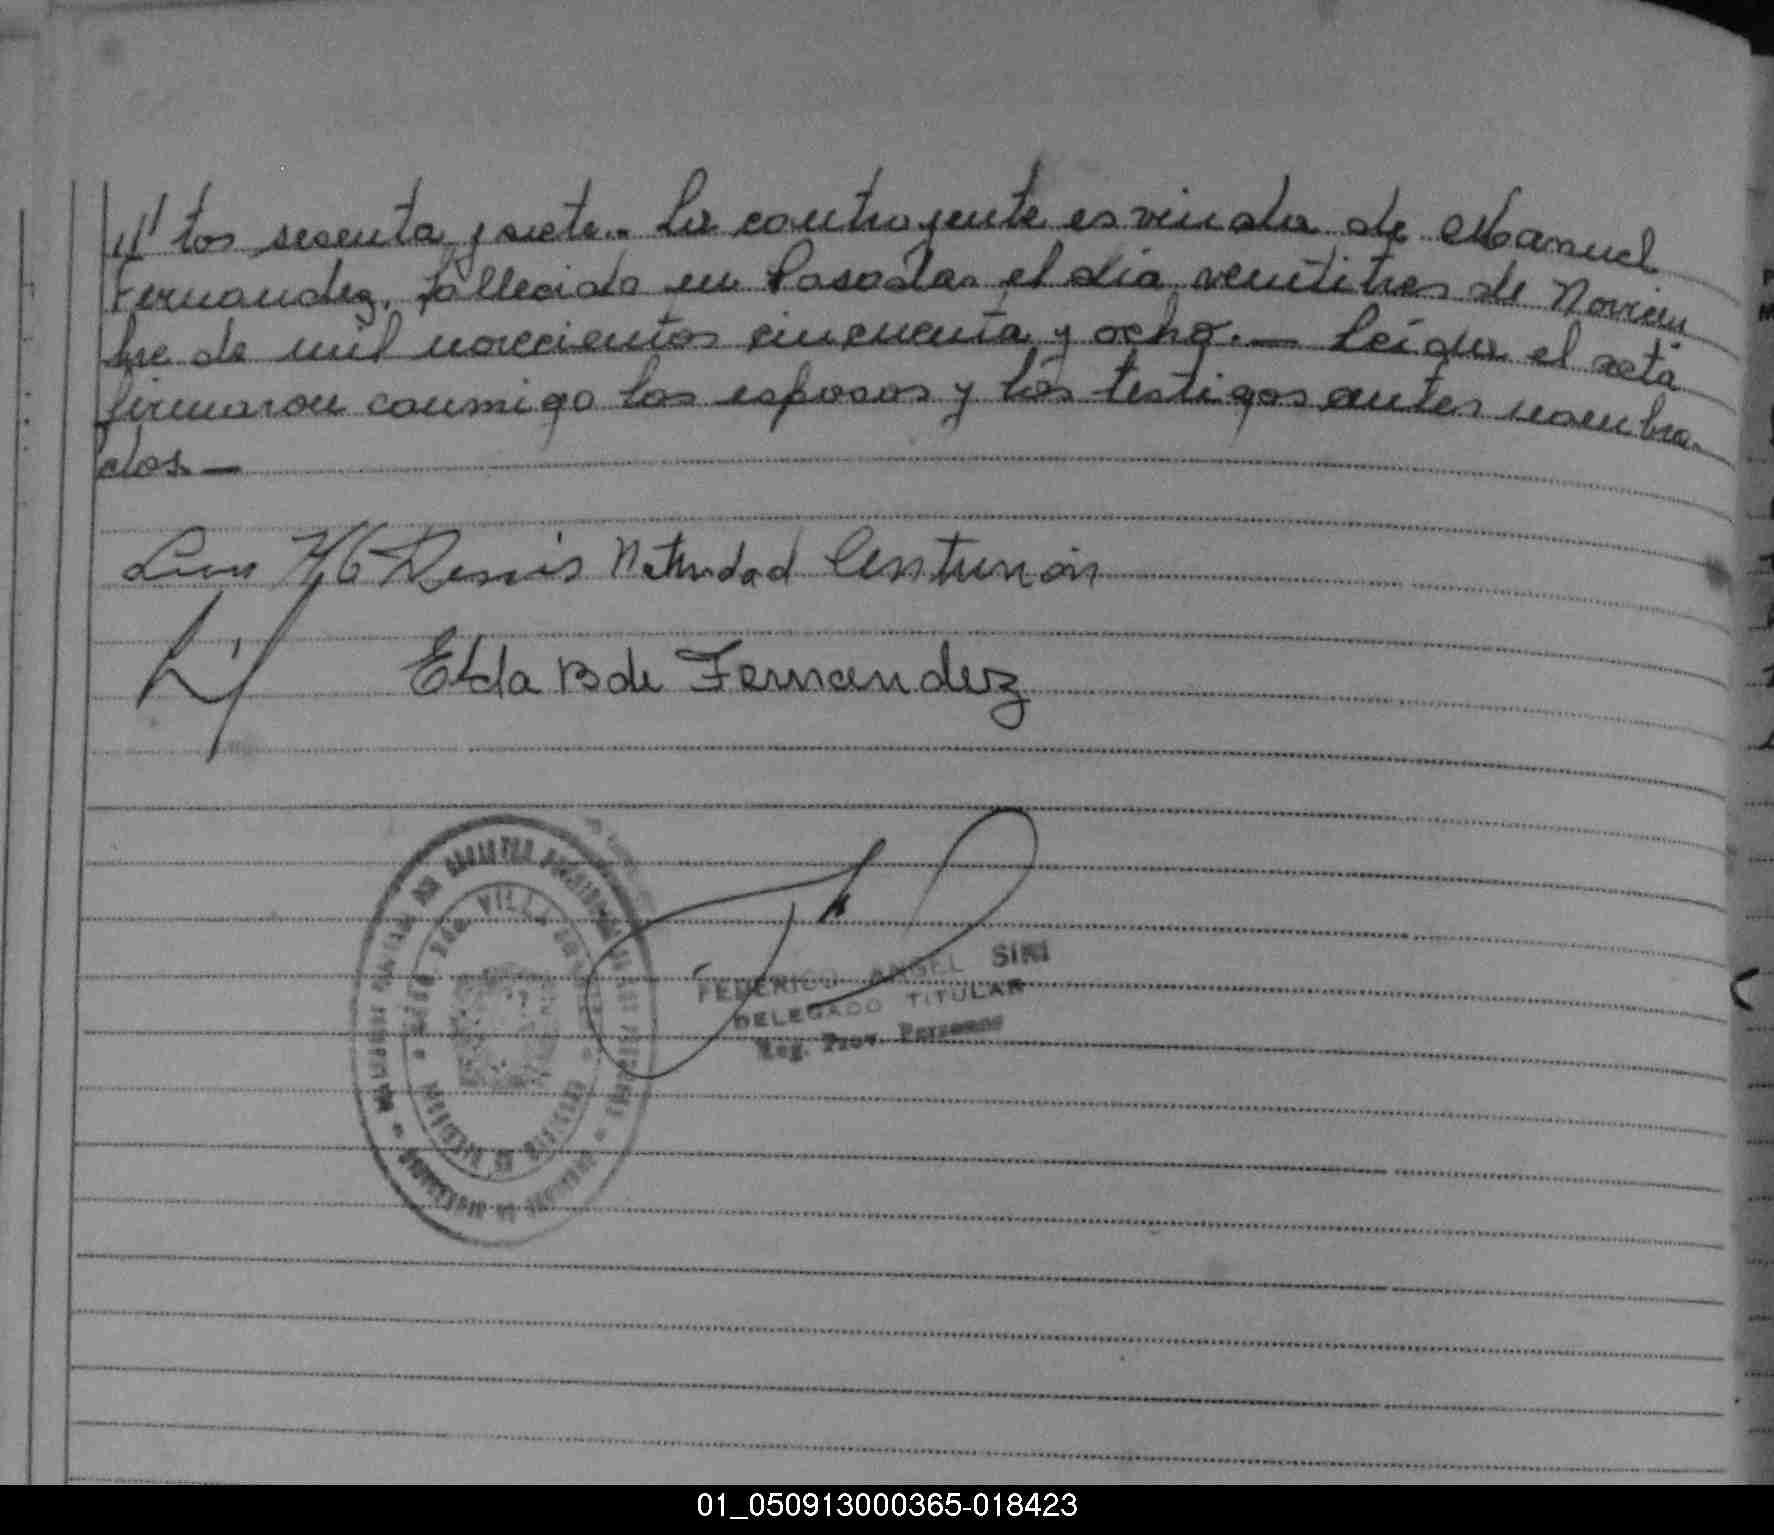 /// tos sesenta y siete.- La contrayente es viuda de Manuel
Fernandez, fallecido en Posadas el dia veintitres de Noviem
bre de mil novecientos cincuenta y ocho.— Leida el acta
firmaron conmigo los esposos y los testigos antes nombra-
dos.—
Natividad Centurión
Elda B de Fernandez
FEDERICO ANGEL SIRI
DELEGADO TITULAR
Reg. Prov. Personas
01_050913000365-018423